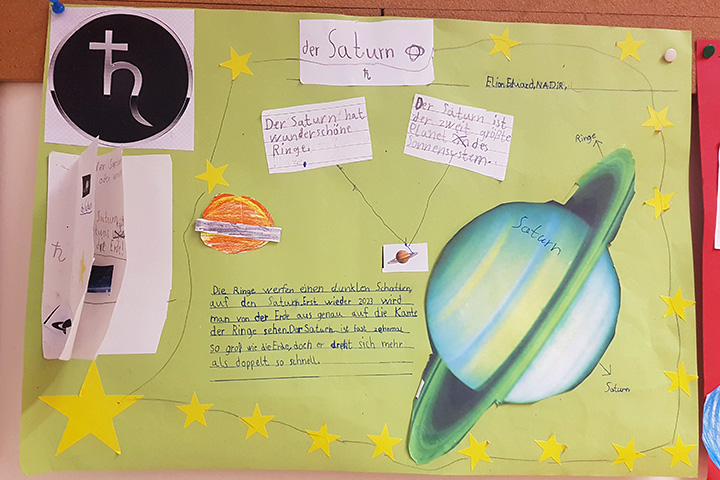 der Saturn
♄
Elion Eduard, NADIR,
Der Saturn hat
wunderschöne
Ringe.
Der Saturn ist
der zweit größte
Planet des
Sonnensystem.
Ringe
Saturn
Die Ringe werfen einen dunklen Schatten
auf den Saturn. Erst wieder 2023 wird
man von der Erde aus genau auf die Kante
der Ringe sehen. Der Saturn ist fast zehnmal
so groß wie die Erde, doch er dreht sich mehr
als doppelt so schnell.
Saturn